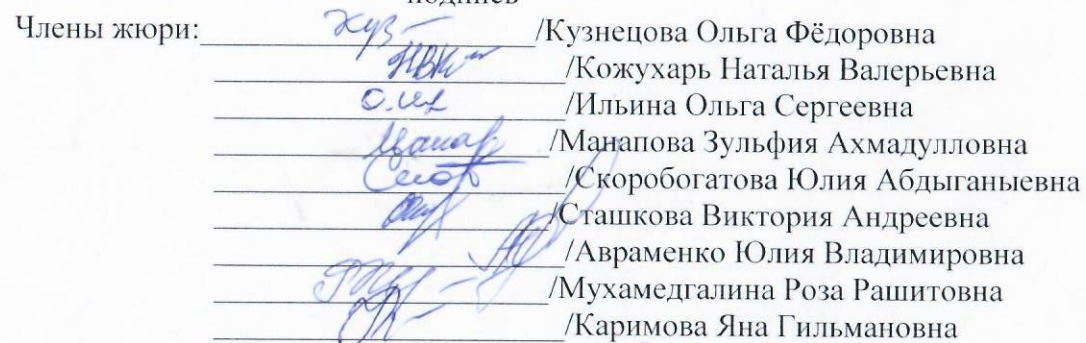 подпись
Члены жюри: /Кузнецова Ольга Фёдоровна
/Кожухарь Наталья Валерьевна
/Ильина Ольга Сергеевна
/Манапова Зульфия Ахмадулловна
/Скоробогатова Юлия Абдыганыевна
/Сташкова Виктория Андреевна
/Авраменко Юлия Владимировна
/Мухамедгалина Роза Рашитовна
/Каримова Яна Гильмановна